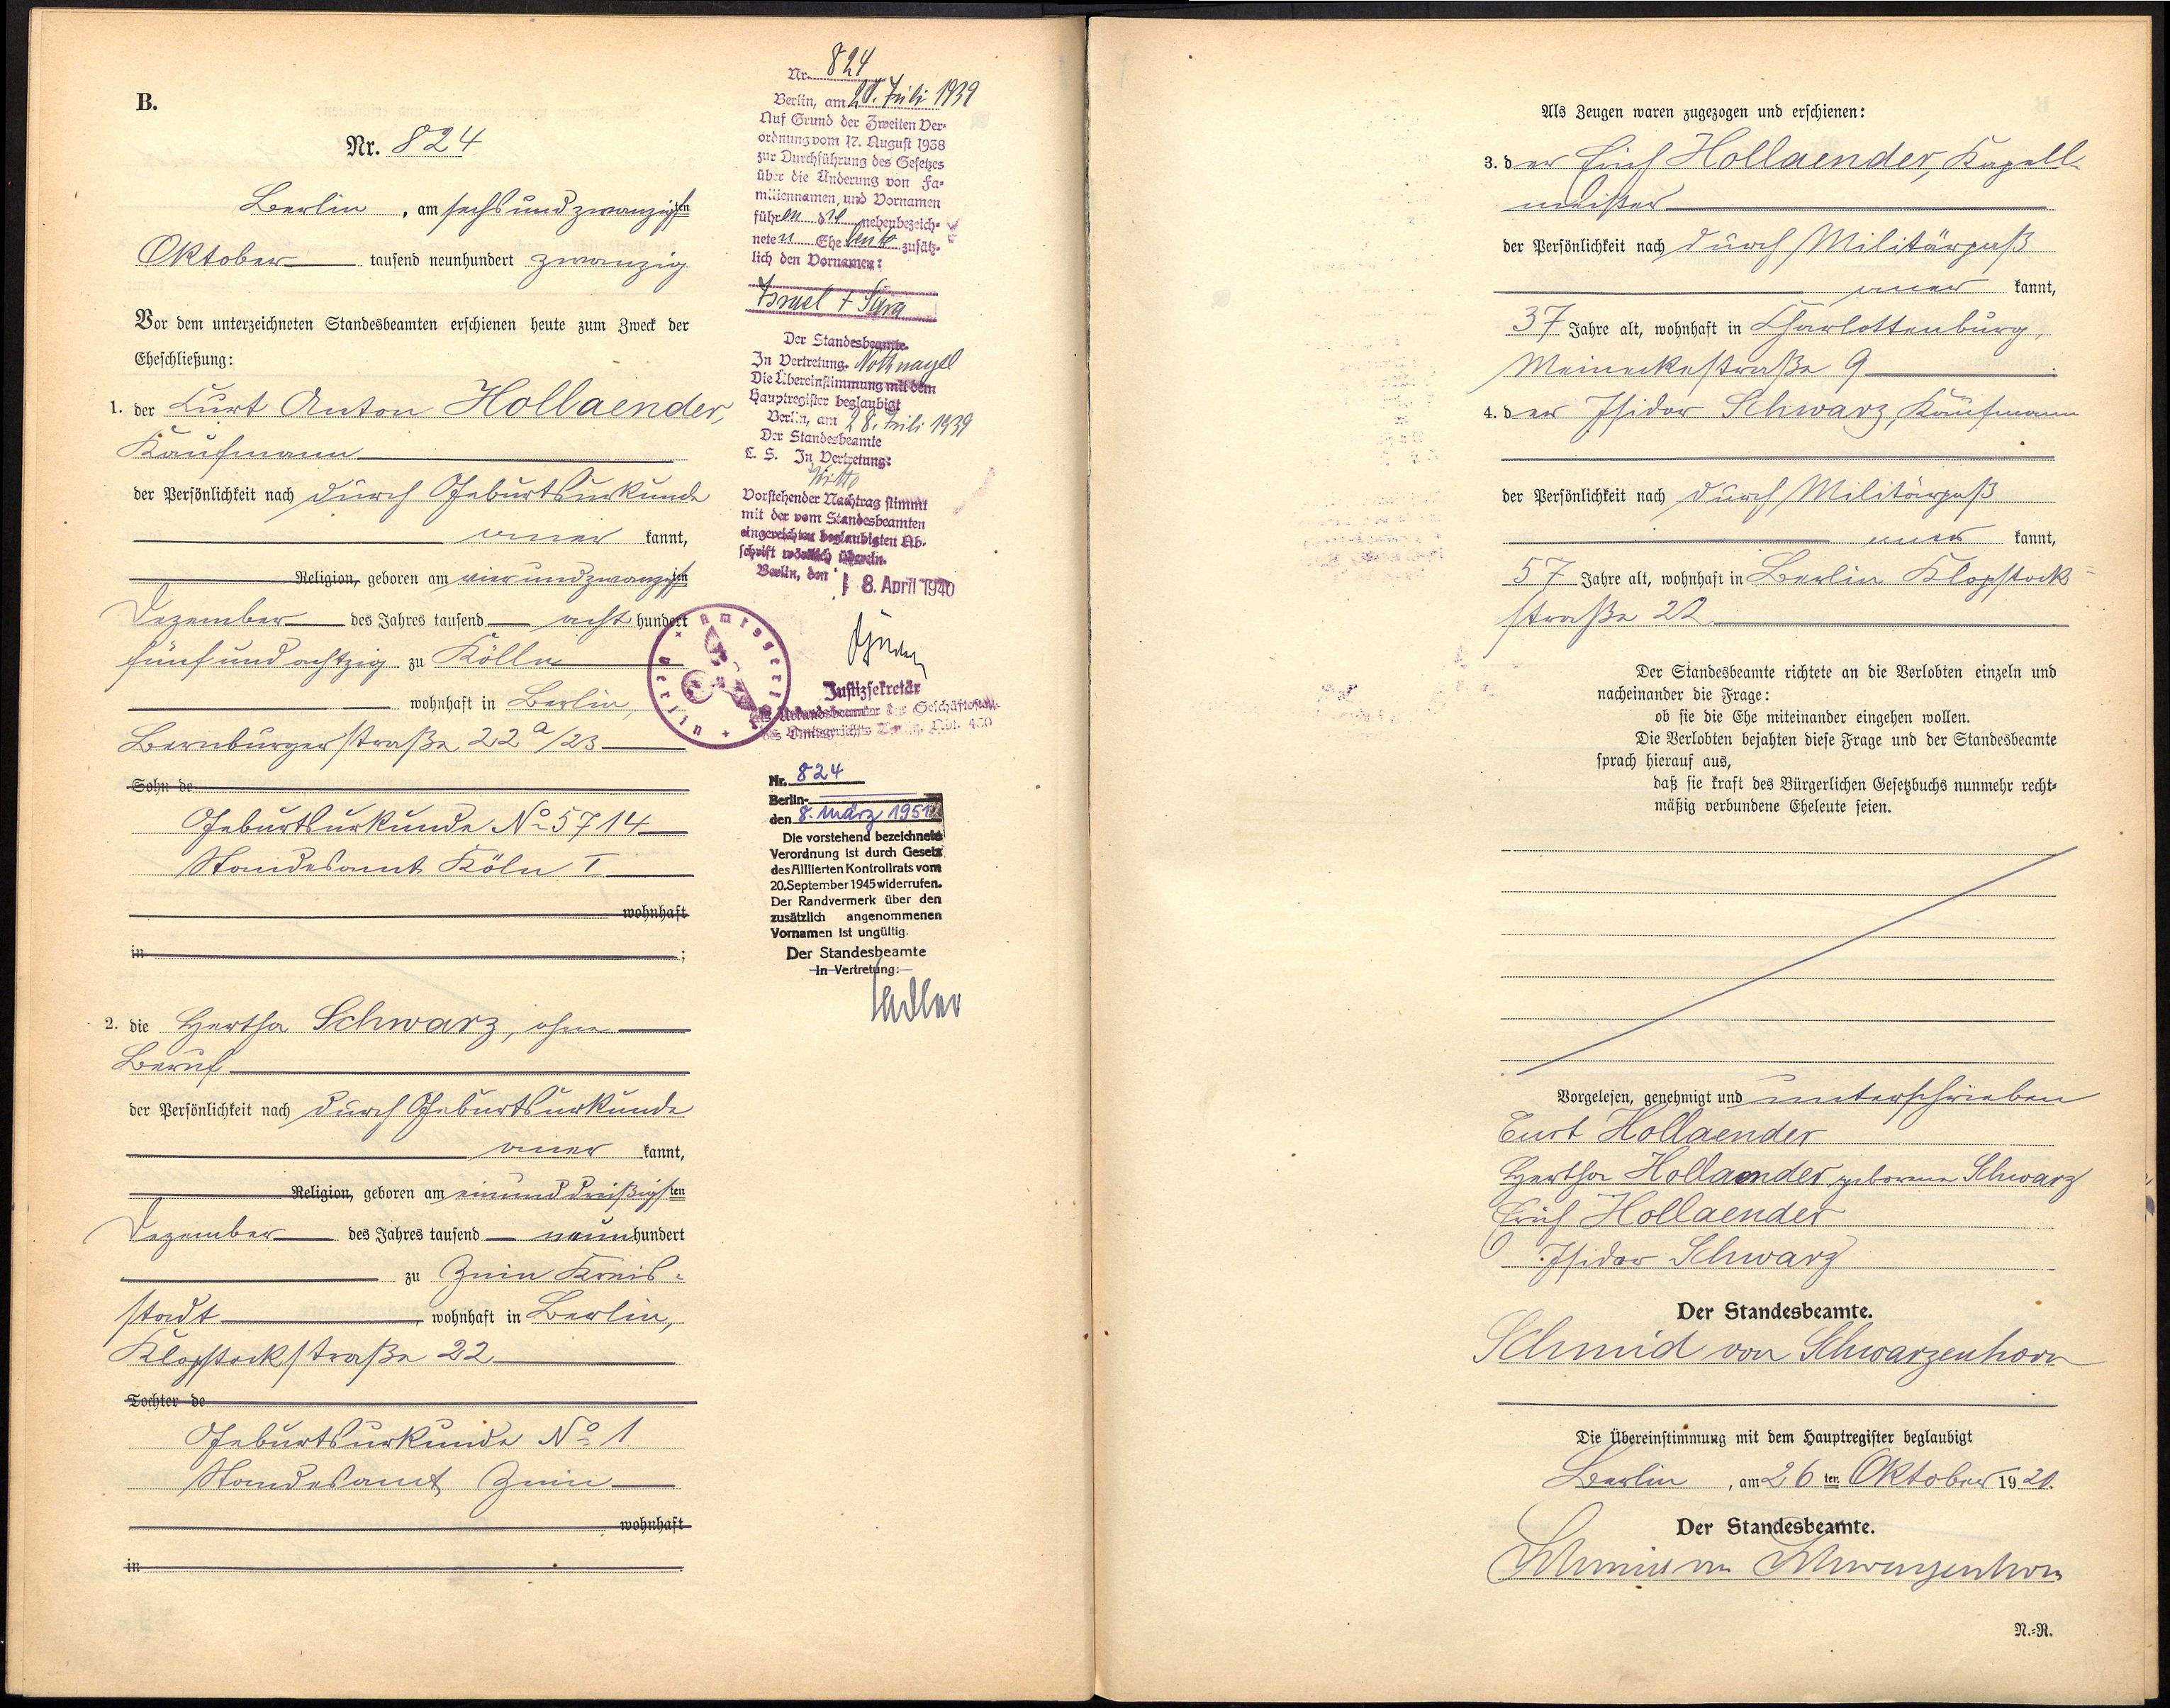 B.
Nr. 824
Berlin, am sechsundzwanzigsten
Oktober tausend neunhundert zwanzig
Vor dem unterzeichneten Standesbeamten erschienen heute zum Zweck der
Eheschließung:
1. der Curt Anton Hollaender,
Kaufmann
der Persönlichkeit nach durch Geburtsurkunde
aner kannt,
Religion, geboren am vierundzwanzigsten
Dezember des Jahres tausend acht hundert
fünfundachtzig zu Kölln
wohnhaft in Berlin,
Bernburgerstraße 22a/23
Sohn de
Geburtsurkunde No 5714
Standesamt Köln I
wohnhaft
in ;
2. die Hertha Schwarz, ohne
Beruf
der Persönlichkeit nach durch Geburtsurkunde
aner kannt,
Religion, geboren am einunddreißigsten
Dezember des Jahres tausend neunhundert
zu Znin Kreis-
stadt, wohnhaft in Berlin,
Klopstockstraße 22
Tochter de
Geburtsurkunde No 1
Standesamt Znin
wohnhaft
in
Nr. 824
Berlin, am 28. Juli 1939
Auf Grund der Zweiten Ver-
ordnung vom 17. August 1938
zur Durchführung des Gesetzes
über die Änderung von Fa-
miliennamen, und Vornamen
führen die nebenbezeich-
neten Eheleute zusätz-
lich den Vornamen:
Israel + Sara
Der Standesbeamte.
In Vertretung. Nothnagel
Die Übereinstimmung mit dem
Hauptregister beglaubigt
Berlin, am 28. Juli 1939
Der Standesbeamte
L. S. In Vertretung:
Witte
Vorstehender Nachtrag stimmt
mit der vom Standesbeamten
eingereichten beglaubigten Ab-
schrift wörtlich überein.
Berlin, den 18. April 1940
Amtsgericht Berlin
Justizsekretär
als Urkundsbeamter der Geschäftsstelle
des Amtsgerichts Berlin, Abt. 460
Nr. 824
Berlin-
den 8. März 1951
Die vorstehend bezeichnete
Verordnung ist durch Gesetz
des Alliierten Kontrollrats vom
20. September 1945 widerrufen.
Der Randvermerk über den
zusätzlich angenommenen
Vornamen ist ungültig.
Der Standesbeamte
In Vertretung:
Als Zeugen waren zugezogen und erschienen:
3. der Erich Hollaender, Kapell-
meister
der Persönlichkeit nach durch Militärpaß
aner kannt,
37 Jahre alt, wohnhaft in Charlottenburg,
Meinekestraße 9.
4. der Isidor Schwarz, Kaufmann
der Persönlichkeit nach durch Militärpaß
aner kannt,
57 Jahre alt, wohnhaft in Berlin Klopstock-
straße 22
Der Standesbeamte richtete an die Verlobten einzeln und
nacheinander die Frage:
ob sie die Ehe miteinander eingehen wollen.
Die Verlobten bejahten diese Frage und der Standesbeamte
sprach hierauf aus,
daß sie kraft des Bürgerlichen Gesetzbuchs nunmehr recht-
mäßig verbundene Eheleute seien.
Vorgelesen, genehmigt und unterschrieben
Curt Hollaender
Hertha Hollaender geborene Schwarz
Erich Hollaender
Isidor Schwarz
Der Standesbeamte.
Schmid von Schwarzenhorn
Die Übereinstimmung mit dem Hauptregister beglaubigt
Berlin, am 26ten Oktober 1920.
Der Standesbeamte.
Schmid von Schwarzenhorn
N.-R.